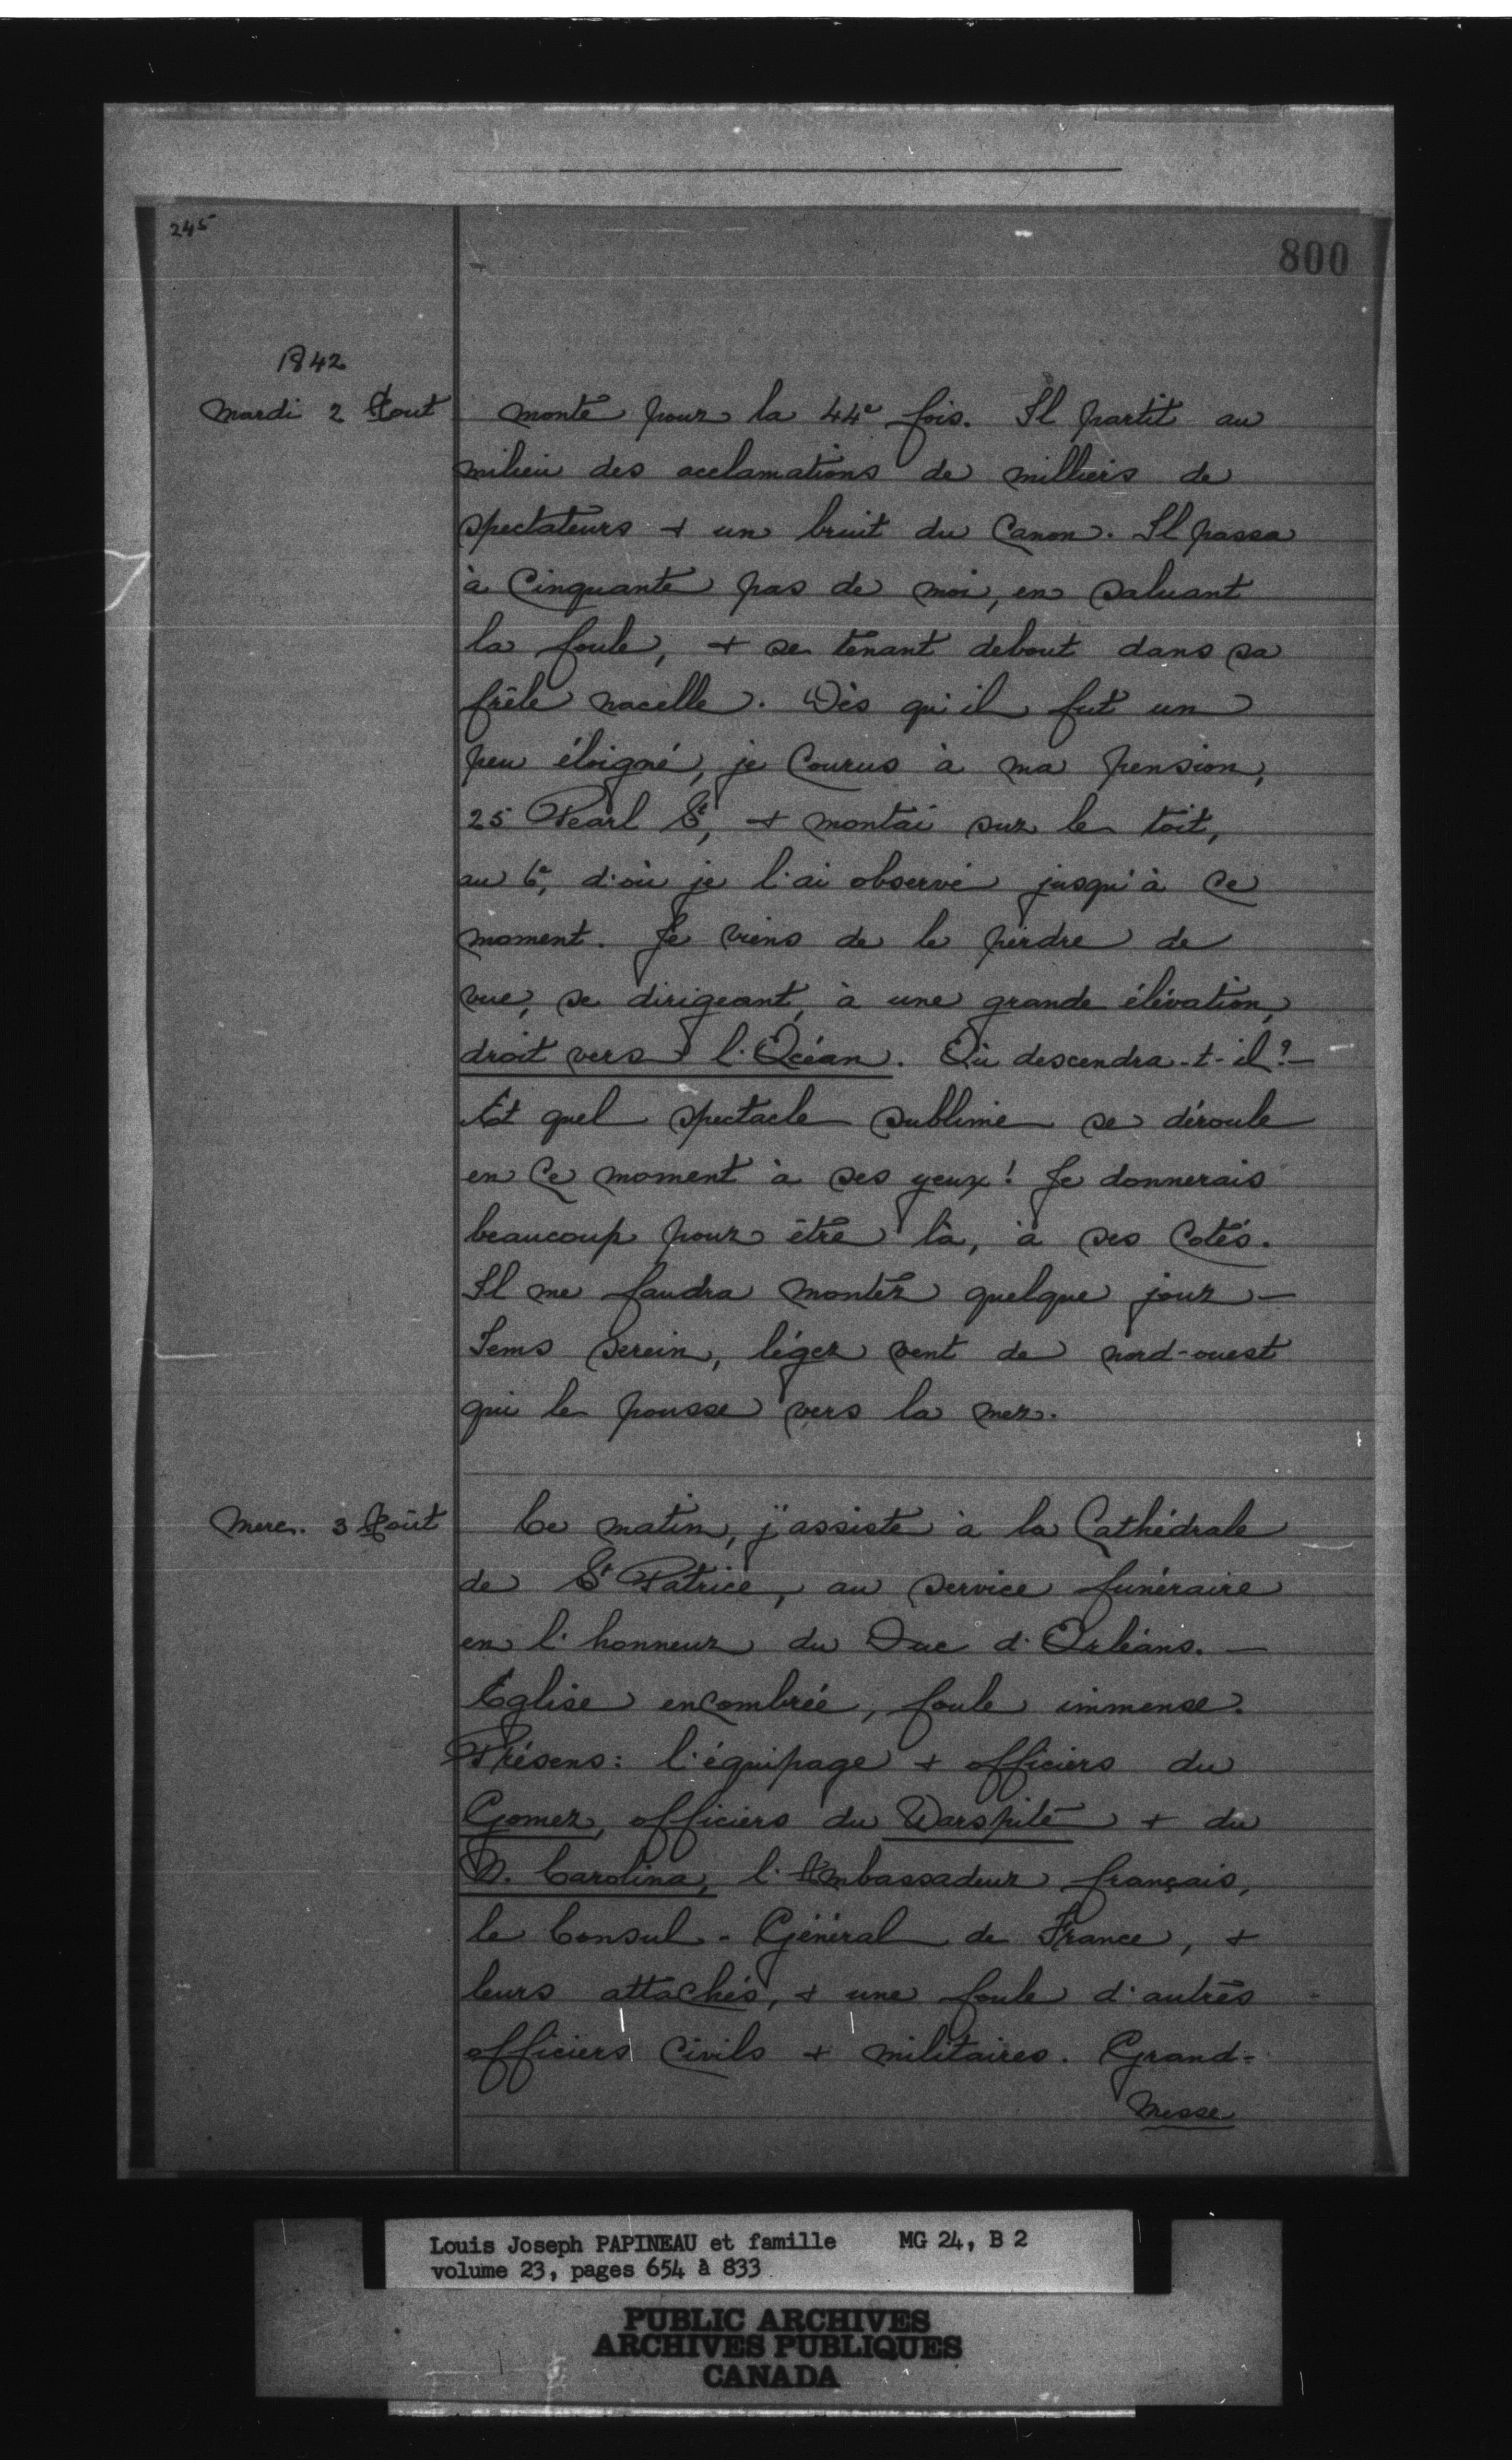 245
800
1842
Mardi 2 Aout
monté pour la 44e fois. Il partit au
milieu des acclamations de milliers de
spectateurs + un bruit du Canon. Il passa
à Cinquante pas de moi, en saluant
la foule, + se tenant debout dans sa
frêle nacelle. Dès qu'il fut un
peu éloigné, je Courus à ma pension,
25 Pearl St, + montai sur le toit,
au 6e, d'où je l'ai observé jusqu'à Ce
moment. Je viens de le perdre de
vue, se dirigeant, à une grande élévation,
droit vers l'Océan. Où descendra-t-il? —
Et quel spectacle sublime se déroule
en Ce moment à ses yeux! Je donnerais
beaucoup pour être là, à ses Cotés.
Il me faudra monter quelque jour —
Tems serein, léger vent de nord-ouest
qui le pousse vers la mer.
Merc. 3 Août
Ce matin, j'assiste à la Cathédrale
de St Patrice, au service funéraire
en l'honneur du Duc d'Orléans. —
Eglise enCombrée, foule immense.
Présens: l'équipage + officiers du
Gomer, officiers du Warspite + du
N. Carolina, l'Ambassadeur français,
le Consul-Général de France, +
leurs attachés, + une foule d'autres
officiers Civils + militaires. Grand-
Messe
Louis Joseph PAPINEAU et famille MG 24, B 2
volume 23, pages 654 à 833
PUBLIC ARCHIVES
ARCHIVES PUBLIQUES
CANADA